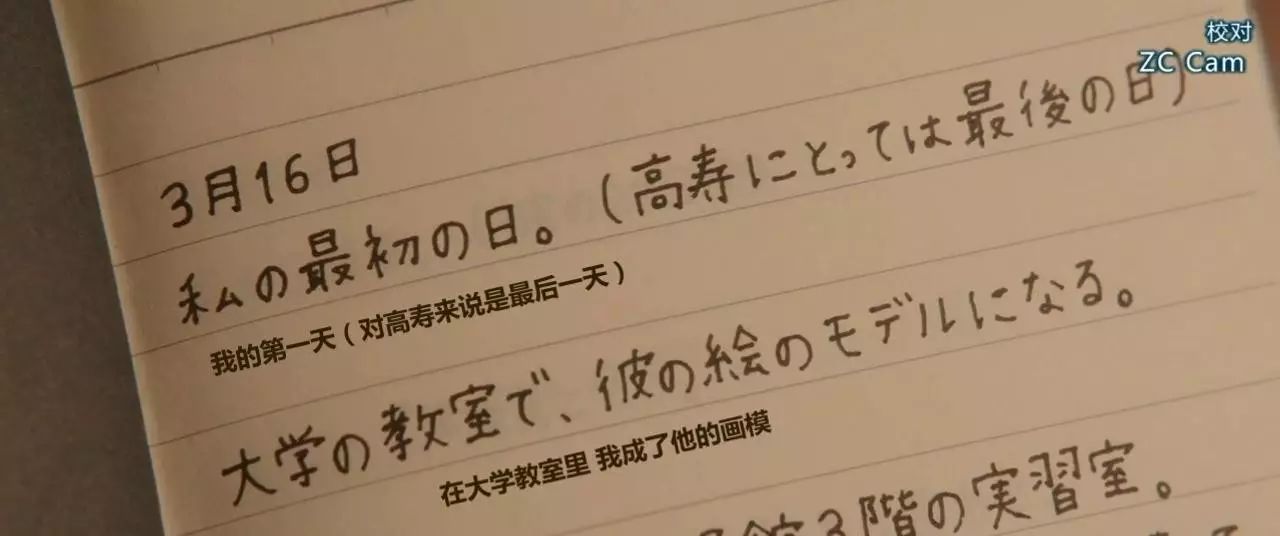 校对
ZC Cam
3月16日
私の最初の日。(高寿にとっては最後の日)
我的第一天(对高寿来说是最后一天)
大学の教室で、彼の絵のモデルになる。
在大学教室里 我成了他的画模
3階の実習室。